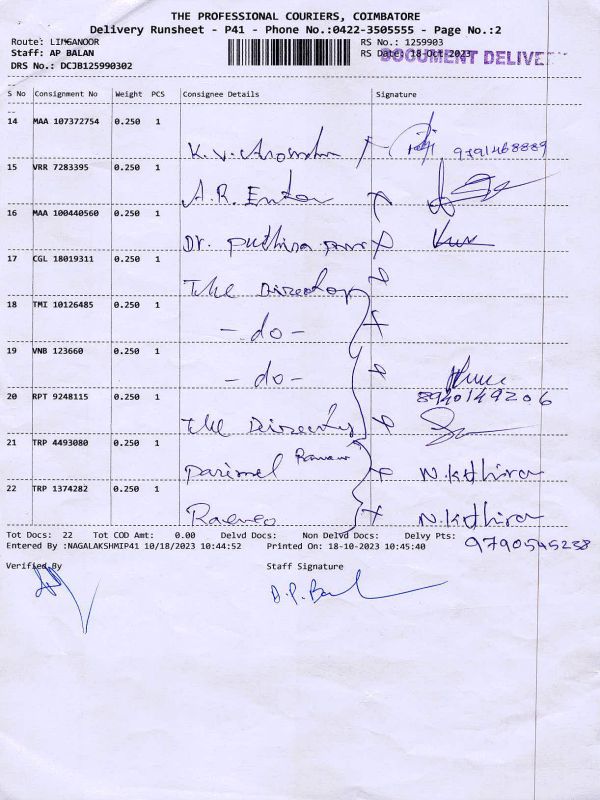 THE PROFESSIONAL COURIERS, COIMBATORE
Delivery Runsheet - P41 - Phone No.:0422-3505555 - Page No.:2
Route: LINGANOOR
RS No.: 1259903
Staff: AP BALAN
RS Date: 18-Oct-2023
DOCUMENT DELIVE
DRS No.: DCJB125990302
S No Consignment No Weight PCS Consignee Details Signature
14 MAA 107372754 0.250 1
K.V. 9791468889
15 VRR 7283395 0.250 1
A.R.
16 MAA 100440560 0.250 1
Dr.
17 CGL 18019311 0.250 1
The Director
18 TMI 10126485 0.250 1
- do -
19 VNB 123660 0.250 1
- do -
20 RPT 9248115 0.250 1 8940149206
The Director
21 TRP 4493080 0.250 1
N.Kathira
22 TRP 1374282 0.250 1
N.Kathira
Tot Docs: 22 Tot COD Amt: 0.00 Delvd Docs: Non Delvd Docs: Delvy Pts:
Entered By :NAGALAKSHMIP41 10/18/2023 10:44:52 Printed On: 18-10-2023 10:45:40 9790545238
Verified By Staff Signature